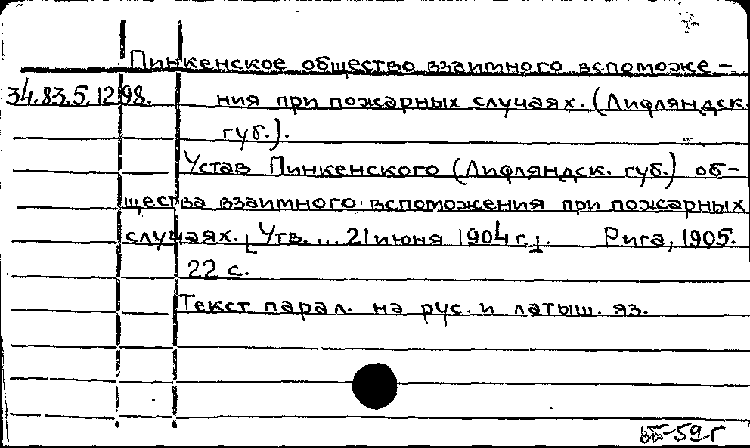 Пинкенское общество взаимного вспоможе-
34.83.5.1298. ния при пожарных случаях. (Лифляндск.
губ.).
Устав Пинкенского (Лифляндск. губ.) об-
щества взаимного вспоможения при пожарных
случаях. [Утв. ... 21 июня 1904 г.]. Рига, 1905.
22 с.
Текст парал. на рус. и латыш. яз.
ВБ-59г